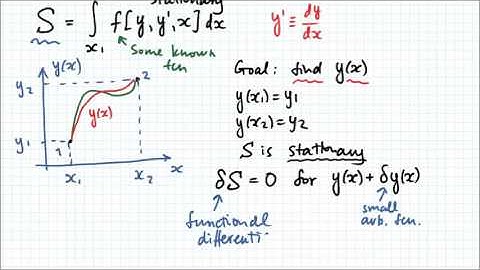 stationary
S = ∫ f[y, y', x] dx
x₁
y' ≡ dy/dx
Some known
fcn
y(x)
y₂
2
y(x)
y₁
1
x₁
x₂
x
Goal: find y(x)
y(x₁) = y₁
y(x₂) = y₂
S is stationary
δS = 0 for y(x) + δy(x)
functional
differenti
small
arb. fcn.